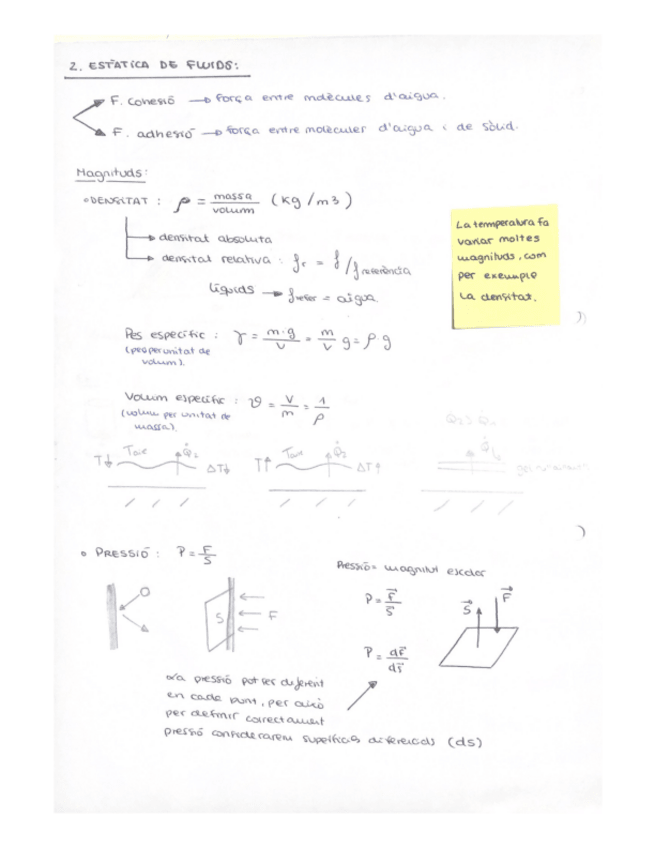 2. ESTÀTICA DE FLUIDS:
F. cohesió → força entre molècules d'aigua.
F. adhesió → força entre molècules d'aigua i de sòlid.
Magnituds:
• DENSITAT : ρ = massa / volum (kg/m3)
→ densitat absoluta
→ densitat relativa : ρr = ρ/ρreferència
líquids → ρrefer = aigua
La temperatura fa
variar moltes
magnituds, com
per exemple
la densitat.
Pes específic : γ = m·g / V = m / V g = ρ·g
(pes per unitat de
volum).
Volum específic : ϑ = V / m = 1 / ρ
(volum per unitat de
massa).
Q2 > Q1
T↓ Taire Q̇1 ΔT↓
T↑ Taire Q̇2 ΔT↑
Q̇
• PRESSIÓ : P = F / S
Pressió = magnitud escalar
S F
P = F⃗ / S⃗
S⃗ F⃗
P = dF⃗ / dS⃗
La pressió pot ser diferent
en cada punt, per això
per definir correctament
pressió considerarem superfícies diferencials (ds)